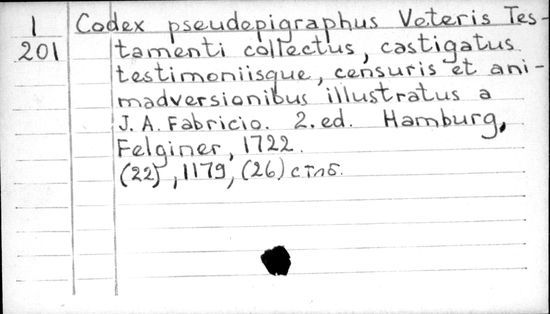 1 Codex pseudepigraphus Veteris Tes-
201 tamenti collectus, castigatus
testimoniisque, censuris et ani-
madversionibus illustratus a
J. A. Fabricio. 2. ed. Hamburg,
Felginer, 1722.
(22), 1179, (26) стлб.